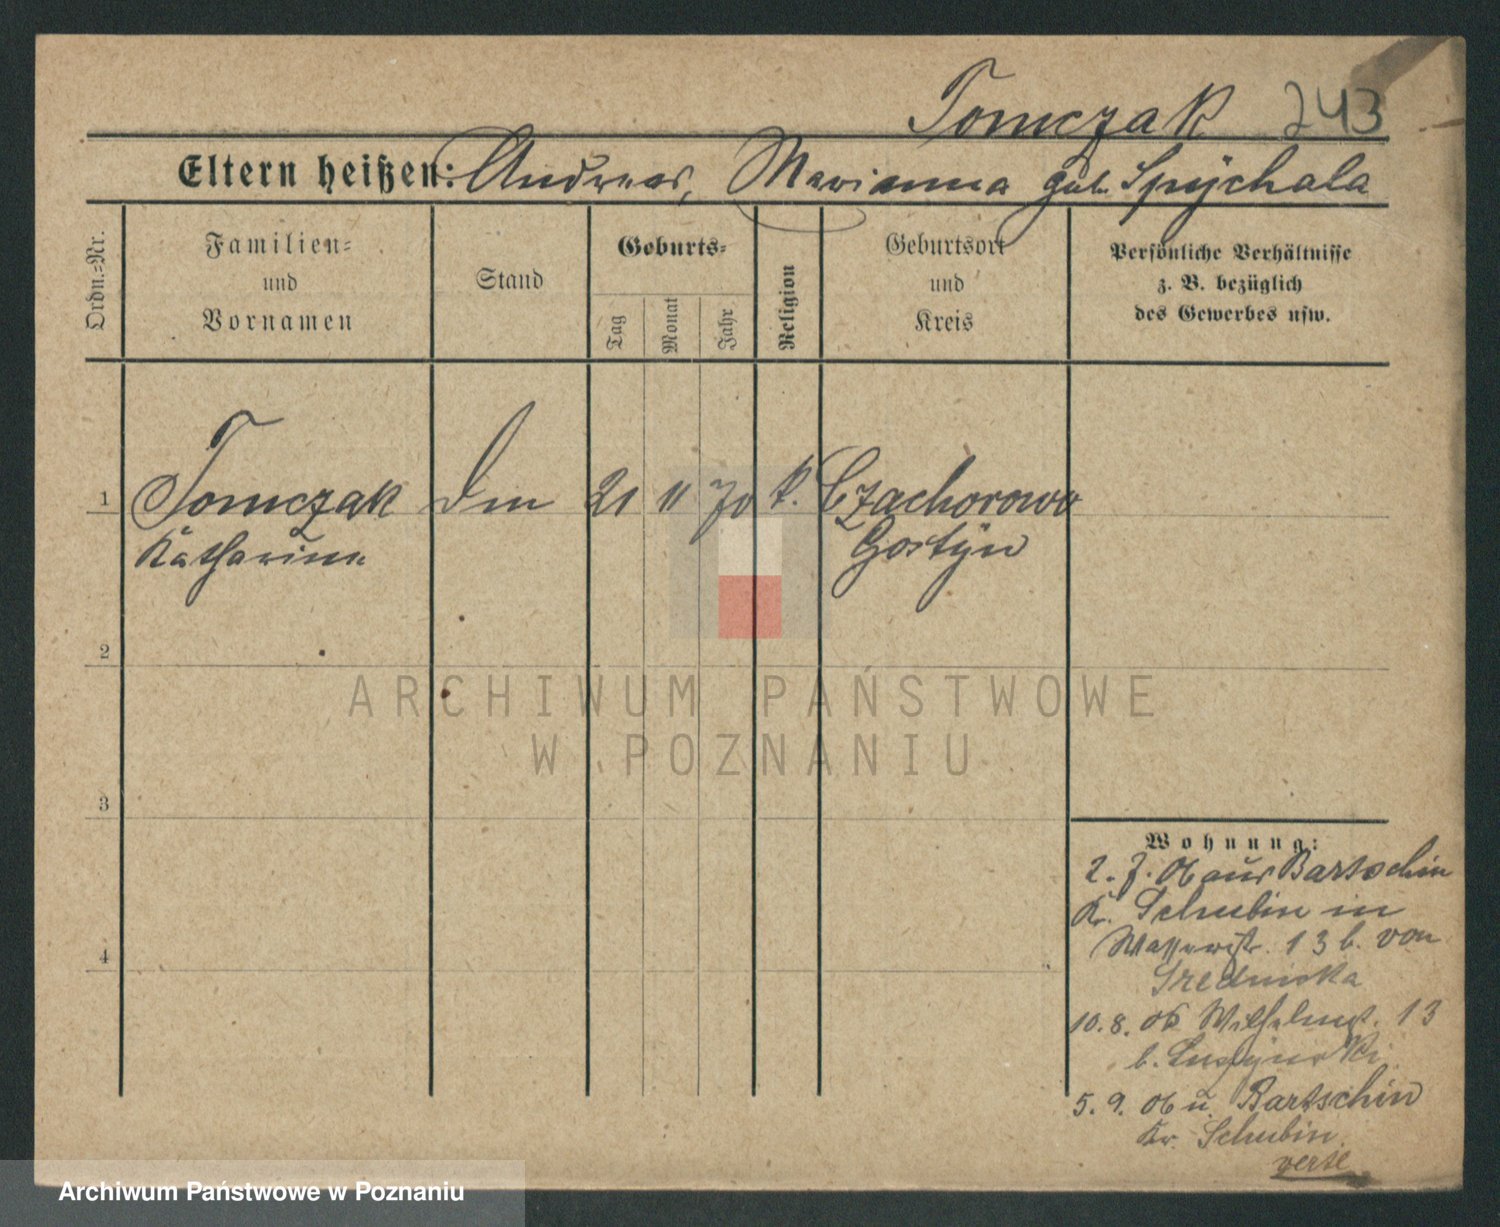 Tomczak 243
Eltern heißen: Andreas, Marianna geb. Spÿchala
Ordn.=Nr.
Familien=
und
Vornamen
Stand
Geburts=
Tag
Monat
Jahr
Religion
Geburtsort
und
Kreis
Persönliche Verhältnisse
z. B. bezüglich
des Gewerbes usw.
1 Tomczak 21 11 70 k. Czachorowo
Katharina Gostÿn
2
3
4
Wohnung:
2. 7. 06 aus Bartschin
Kr. Schubin in
Wasserstr. 13 b. von
Srednicka
10. 8. 06 Wilhelmst. 13
b.
5. 9. 06 n. Bartschin
Kr. Schubin
verte
ARCHIWUM PAŃSTWOWE
W POZNANIU
Archiwum Państwowe w Poznaniu